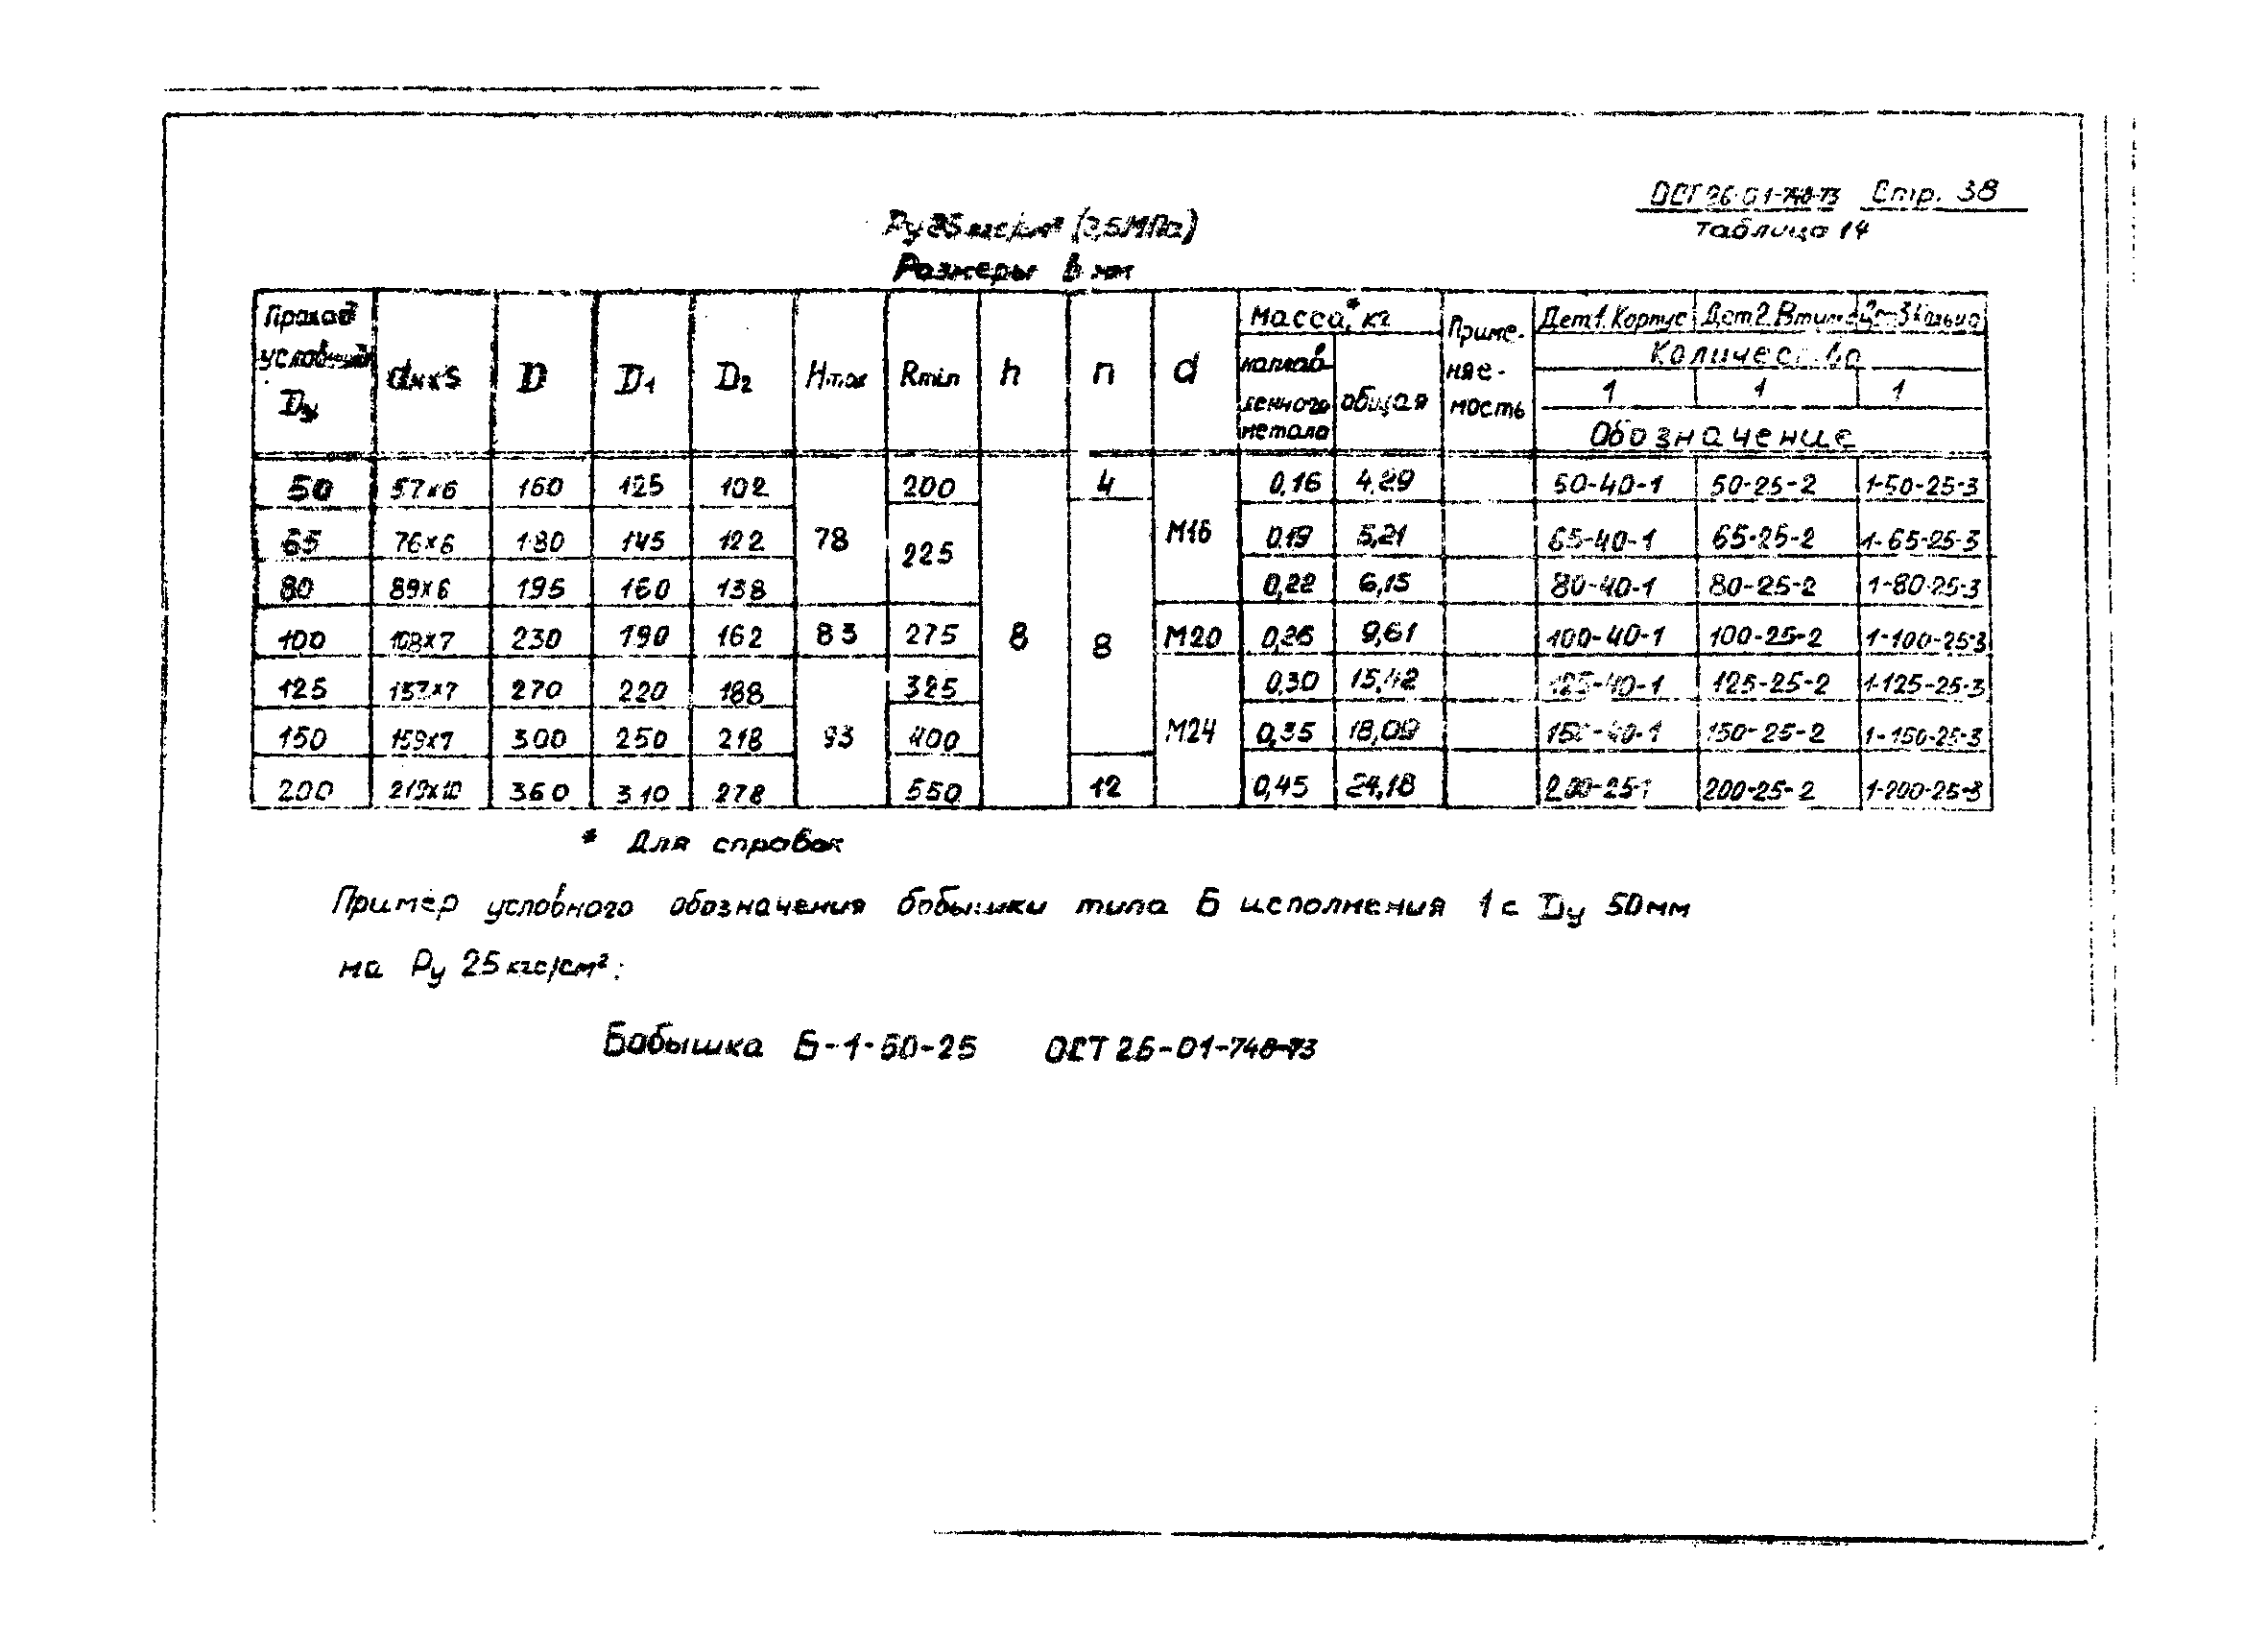 ОСТ 26-01-748-73 Стр. 38
Таблица 14
Ру 25 кгс/см² (2,5 МПа)
Размеры в мм
Проход условный Dу | dн×S | D | D1 | D2 | Hmax | Rmin | h | n | d | Масса,* кг | Применяемость | Дет1. Корпус | Дет2. Втулка | Дет3 Кольцо
наплавленного метала | общая | Количество
1 | 1 | 1
Обозначение
50 | 57×6 | 160 | 125 | 102 | 78 | 200 | 8 | 4 | М16 | 0,16 | 4,29 | 50-40-1 | 50-25-2 | 1-50-25-3
65 | 76×6 | 180 | 145 | 122 | 225 | 8 | 0,19 | 5,21 | 65-40-1 | 65-25-2 | 1-65-25-3
80 | 89×6 | 195 | 160 | 138 | 0,22 | 6,15 | 80-40-1 | 80-25-2 | 1-80-25-3
100 | 108×7 | 230 | 190 | 162 | 83 | 275 | М20 | 0,26 | 9,61 | 100-40-1 | 100-25-2 | 1-100-25-3
125 | 133×7 | 270 | 220 | 188 | 93 | 325 | М24 | 0,30 | 15,42 | 125-40-1 | 125-25-2 | 1-125-25-3
150 | 159×7 | 300 | 250 | 218 | 400 | 0,35 | 18,09 | 150-40-1 | 150-25-2 | 1-150-25-3
200 | 219×10 | 360 | 310 | 278 | 550 | 12 | 0,45 | 24,18 | 200-25-1 | 200-25-2 | 1-200-25-3
* Для справок
Пример условного обозначения бобышки типа Б исполнения 1 с Dу 50мм
на Ру 25 кгс/см²:
Бобышка Б-1-50-25 ОСТ 26-01-748-73